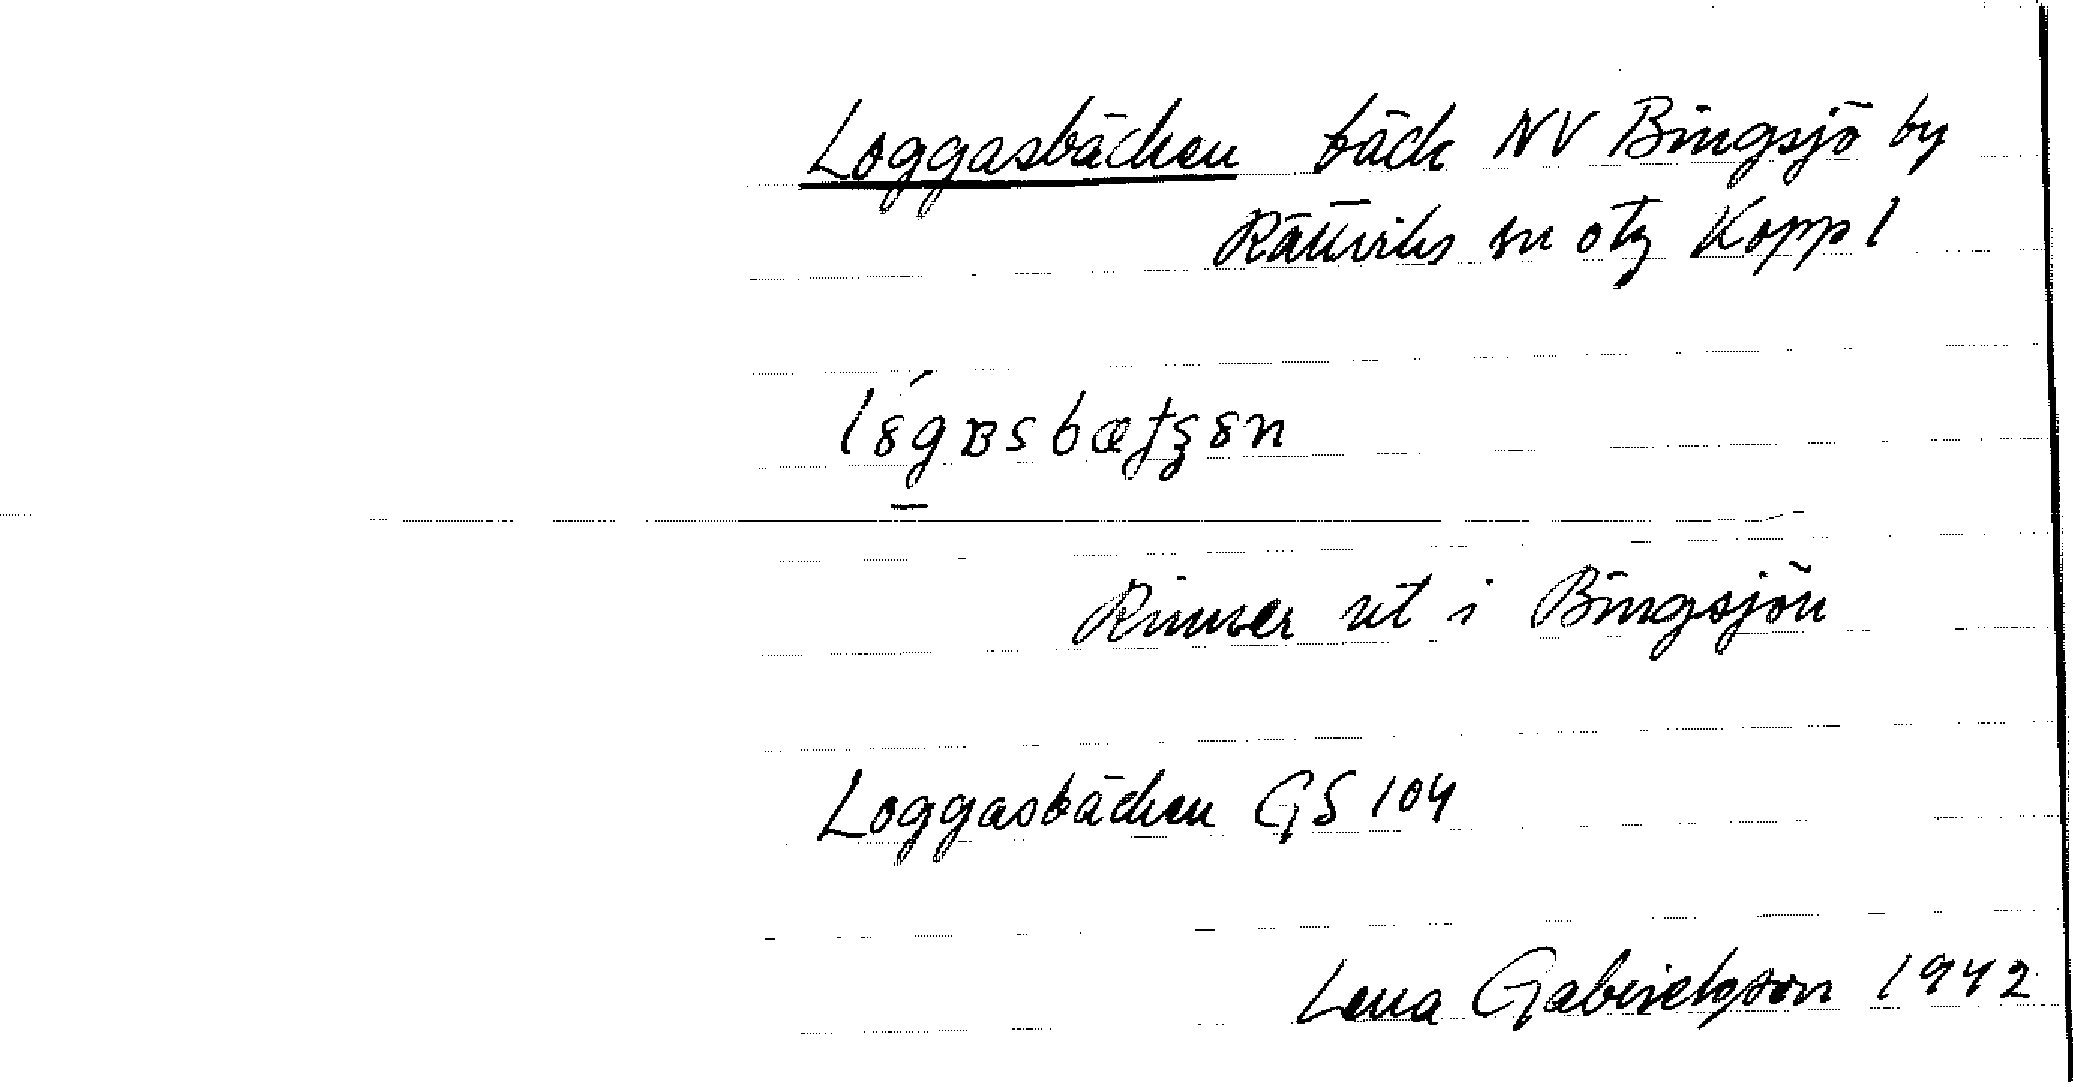 Loggasbäcken bäck NV Bingsjö by
Rättviks sn otg Kopp l
Rinner ut i Bingsjön
Loggasbäcken GS 104
Lena Gabrielsson 1942